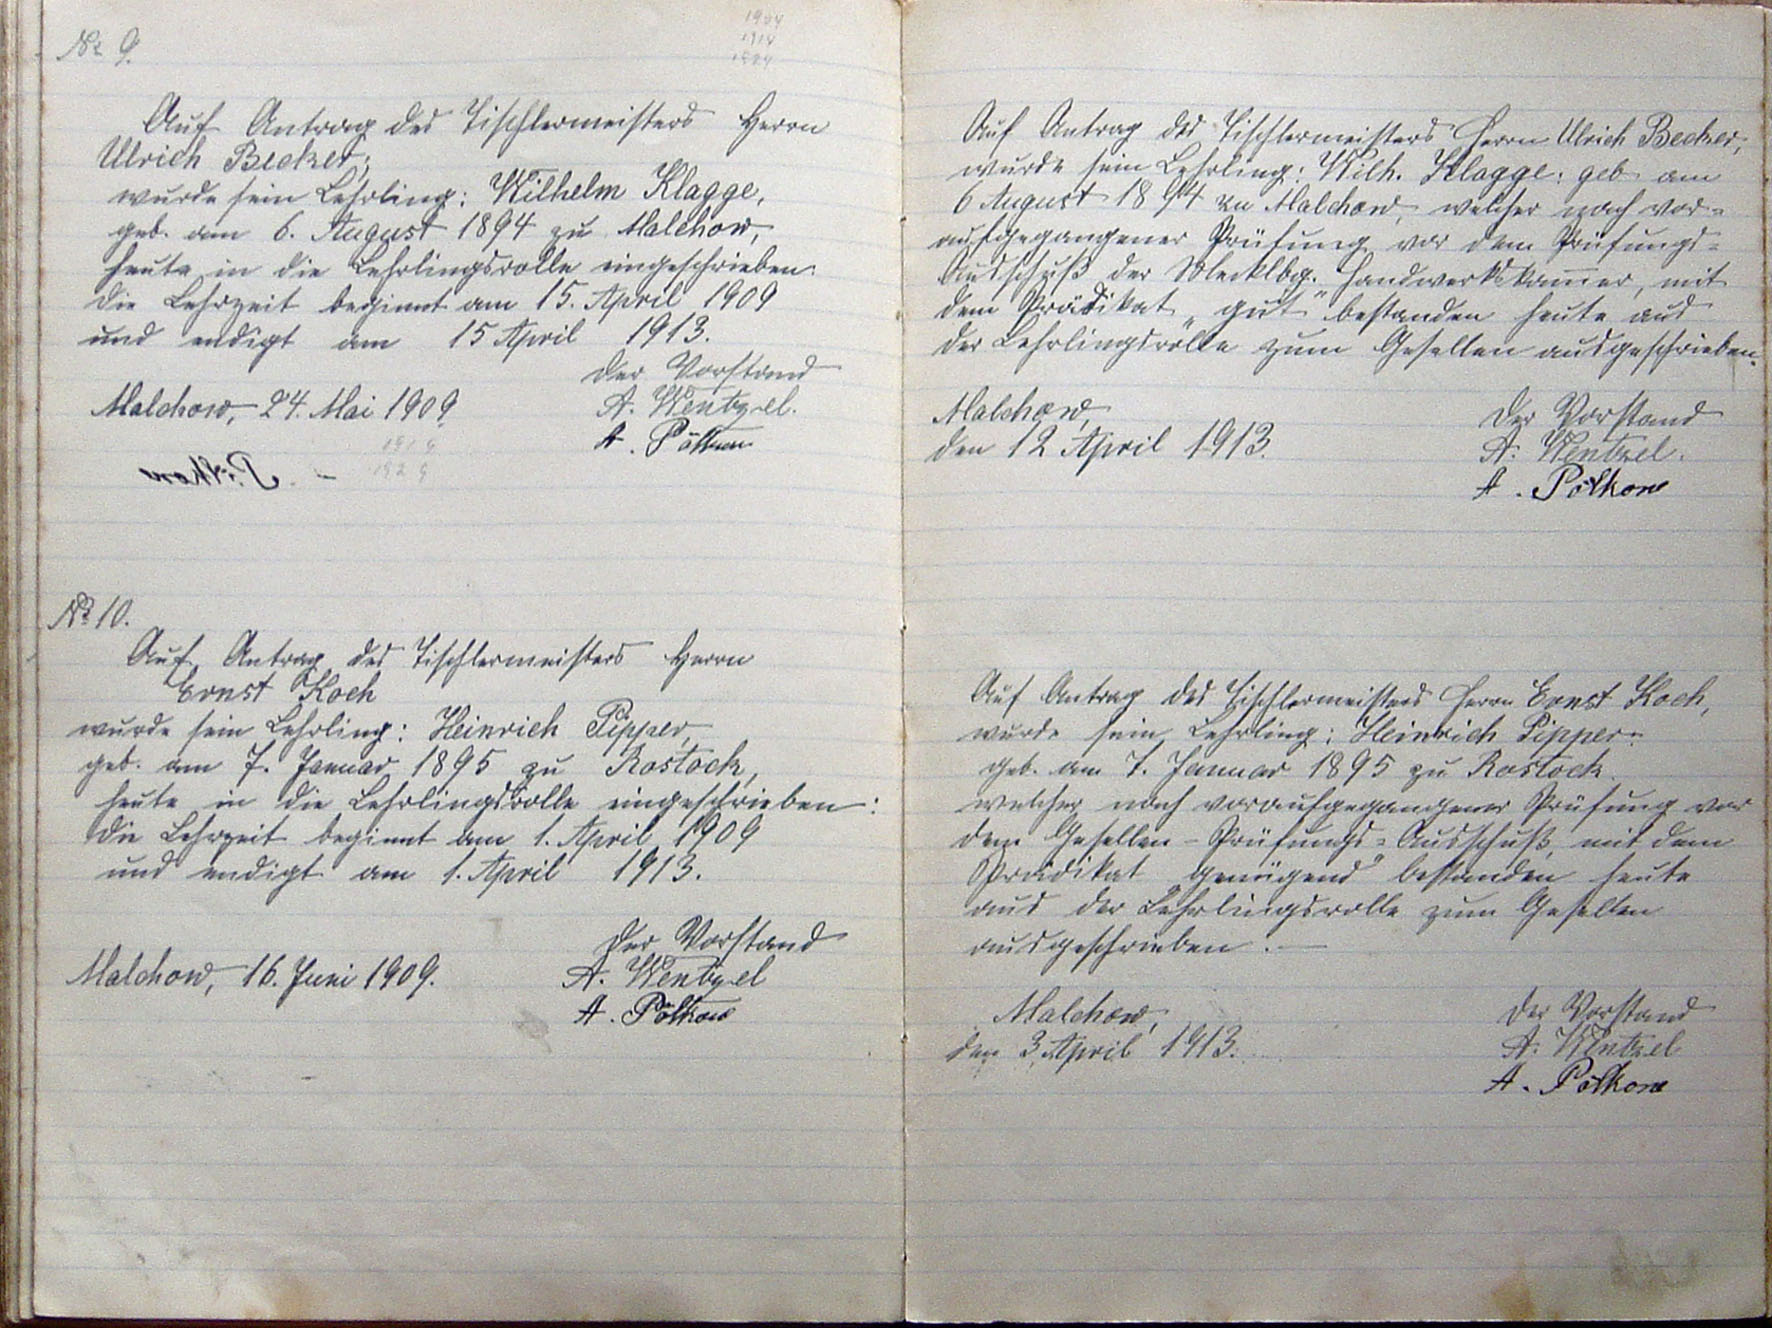 1904
1914
1924
No 9.
Auf Antrag des Tischlermeisters Herrn
Ulrich Becker,
wurde sein Lehrling: Wilhelm Klagge,
geb. am 6. August 1894 zu Malchow,
heute in die Lehrlingsrolle eingeschrieben:
die Lehrzeit beginnt am 15. April 1909
und endigt am 15 April 1913.
Der Vorstand
Malchow, 24. Mai 1909.
A. Wentzel.
A. Pölkow
1919
1929
Pölkow
No 10.
Auf Antrag des Tischlermeisters Herrn
Ernst Koch
wurde sein Lehrling: Heinrich Pipper,
geb. am 7. Januar 1895 zu Rostock,
heute in die Lehrlingsrolle eingeschrieben:
die Lehrzeit beginnt am 1. April 1909
und endigt am 1. April 1913.
Der Vorstand
Malchow, 16. Juni 1909.
A. Wentzel
A. Pölkow
Auf Antrag des Tischlermeisters Herrn Ulrich Becker,
wurde sein Lehrling: Wilh. Klagge: geb am
6 August 1894 zu Malchow, welcher nach vor=
aufgegangener Prüfung vor dem Prüfungs=
Ausschuß der Mecklbg. Handwerkskam̅er, mit
dem Prädikat „gut" bestanden heute aus
der Lehrlingsrolle zum Gesellen ausgeschrieben.
Malchow,
den 12 April 1913.
Der Vorstand
A. Wentzel.
A. Pölkow
Auf Antrag des Tischlermeisters Herrn Ernst Koch,
wurde sein Lehrling: Heinrich Pipper:
geb. am 7. Januar 1895 zu Rostock.
welcher nach voraufgegangener Prüfung vor
dem Gesellen-Prüfungs=Ausschuß, mit dem
Prädikat genügend" bestanden heute
aus der Lehrlingsrolle zum Gesellen
ausgeschrieben. —
Malchow,
den 3 April 1913.
Der Vorstand
A. Wentzel
A. Pölkow